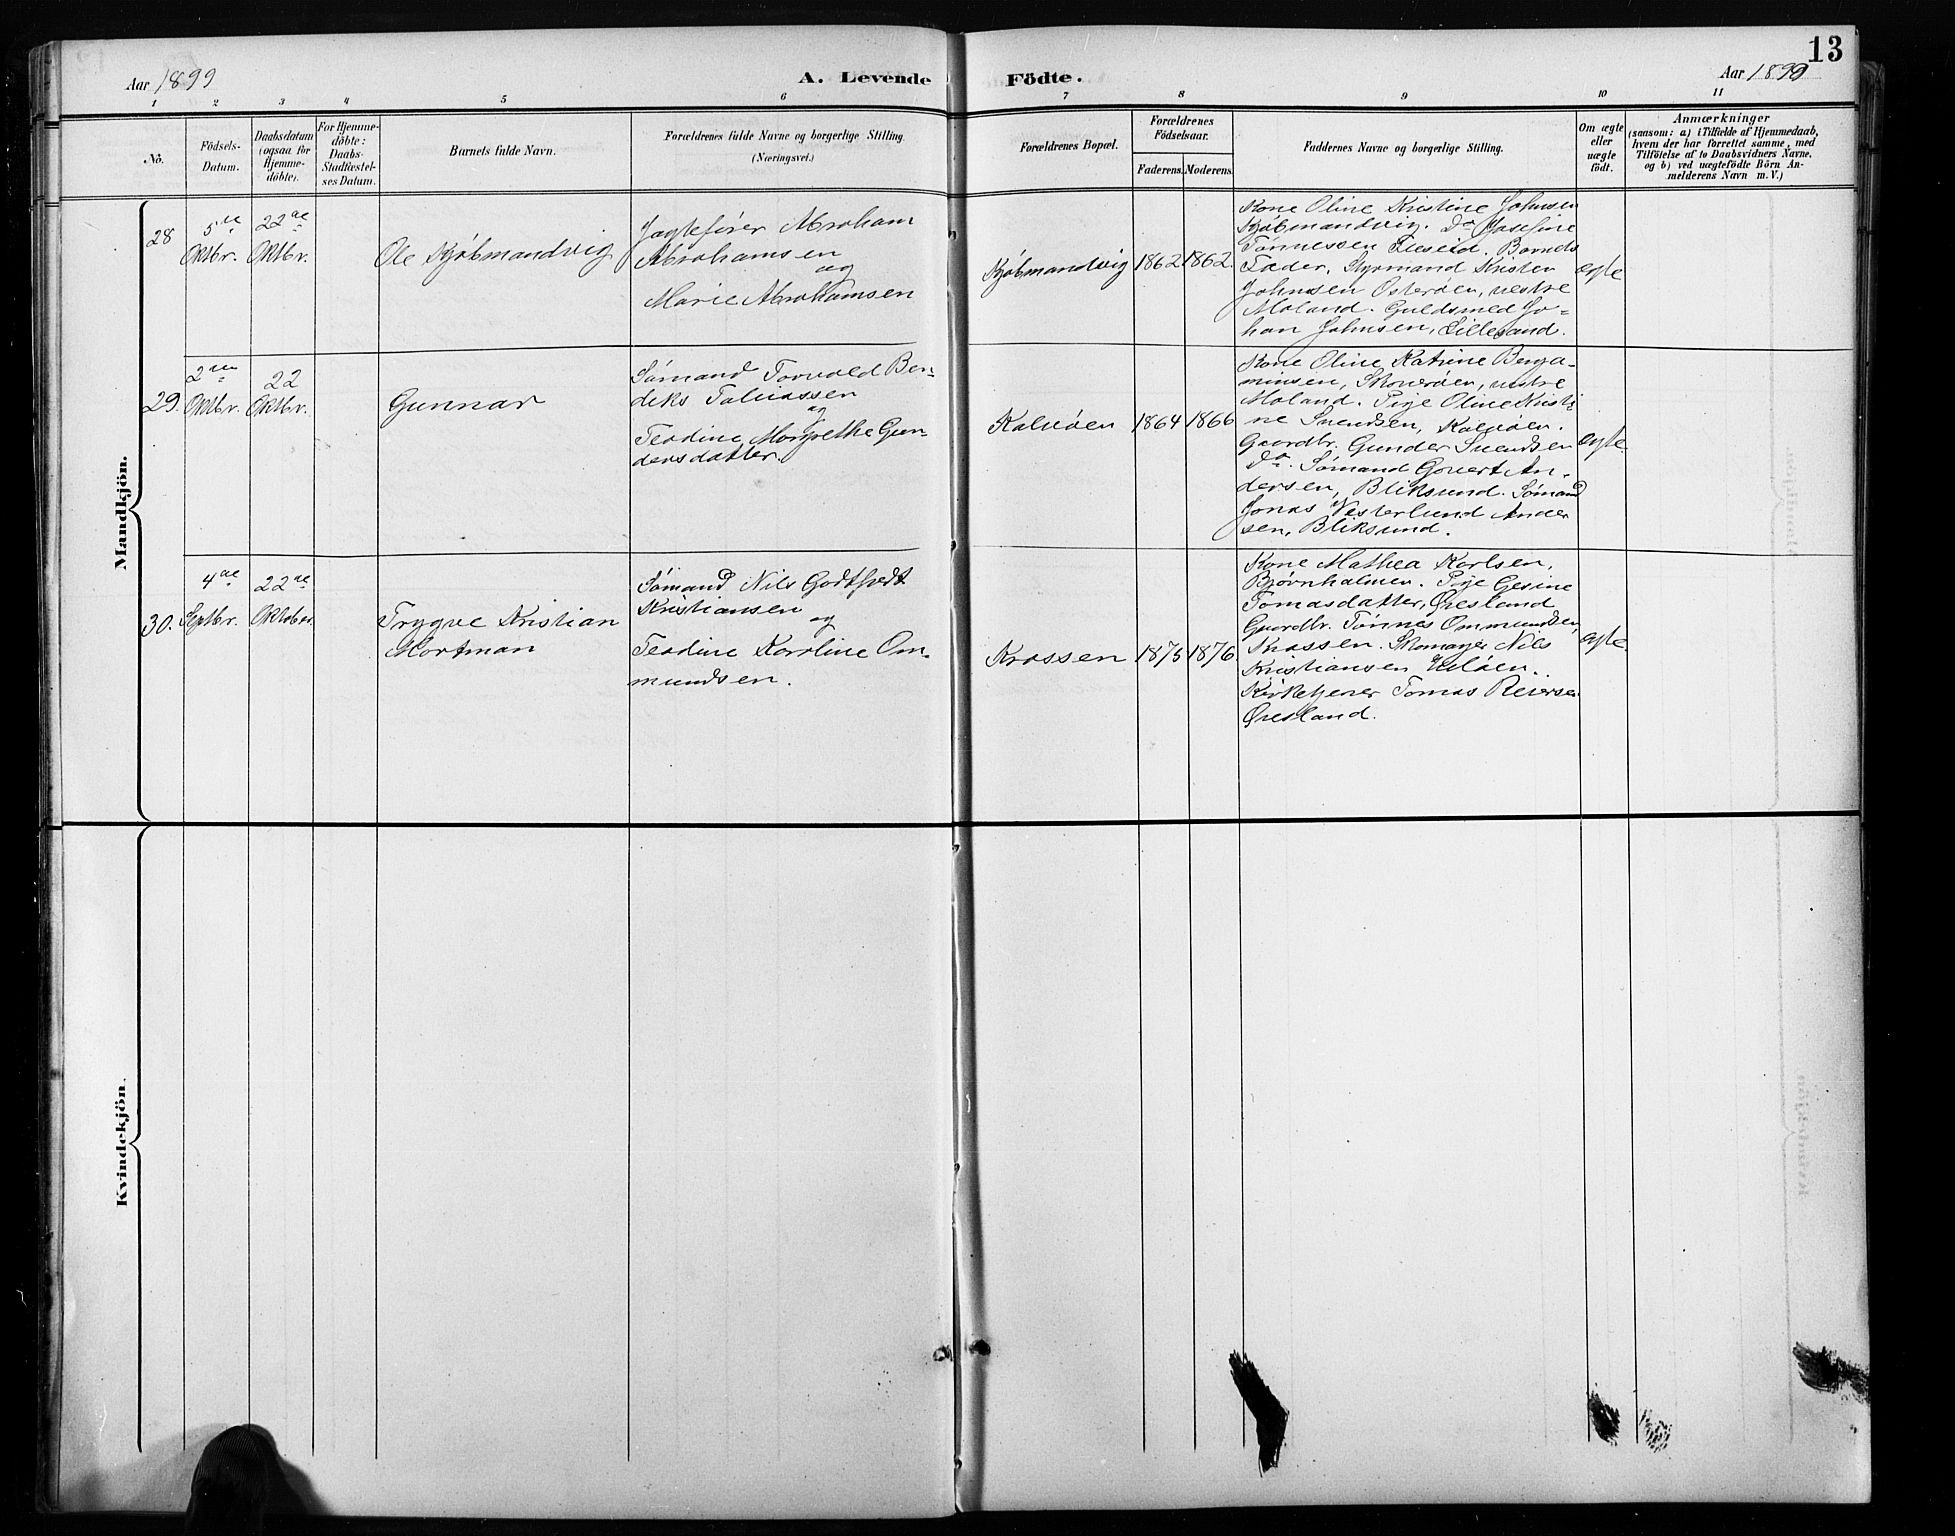 13
Aar 1899
A. Levende
Födte.
Aar 1899
1 2 3 4 5 6 7 8 9 10 11
No.
Födsels-
Datum.
Daabsdatum
(ogsaa for
Hjemme-
döbte).
For Hjemme-
döbte:
Daabs-
Stadfæstel-
ses Datum.
Barnets fulde Navn.
Forældrenes fulde Navne og borgerlige Stilling.
(Næringsvei.)
Forældrenes Bopæl.
Forældrenes
Födselsaar.
Faderens. Moderens.
Faddernes Navne og borgerlige Stilling.
Om ægte
eller
uægte
født.
Anmærkninger
(saasom: a) i Tilfælde af Hjemmedaab,
hvem der har forrettet samme, med
Tilföielse af to Daabsvidners Navne,
og b) ved uægtefödte Börn An-
melderens Navn m. V.)
Mandkjön.
28
5te
Oktbr.
22de
Oktbr.
Ole Kjøbmandvig
Jagtefører Abraham
Abrahamsen
og
Marie Abrahamsen
Kjøbmandvig
1862
1862.
Kone Oline Kristine Johnsen
Kjøbmandvig. Do Josefine
Tønnessen Barnets
Fader, Styrmand Kristen
Johnsen Osterøen, vestre
Moland. Guldsmed Jo-
han Johnsen, Lillesand.
ægte
29.
2den
Oktbr.
22
Oktbr.
Gunnar
Sømand Torvald Ben-
diks Tobiassen
og
Teodine Margrethe Gun-
dersdatter.
Kalvøen
1864
1866
Kone Oline Katrine Benja-
minsen, vestre
Moland. Pige Oline Kristi-
ne Svendsen, Kalvøen.
Gaardbr. Gunder Svendsen
Do. Sømand Govert An-
dersen, Bliksund. Sømand
Jonas Vesterlund Ander
sen, Bliksund.
ægte.
30.
4de
Septbr.
22de
Oktober.
Trygve Kristian
Hartman
Sømand Nils Godtfredt
Kristiansen
og
Teodine Karoline Om-
mundsen.
Krossen
1875
1876.
Kone Mathea Karlsen,
Bjørnholmen. Pige Gesine
Tomasdatter, Øresland
Gaardbr. Tønnes Ommundsen,
Krossen. Skomager Nils
Kristiansen
Kirketjener Tomas Reiersen
Øresland.
ægte.
Kvindekjön.